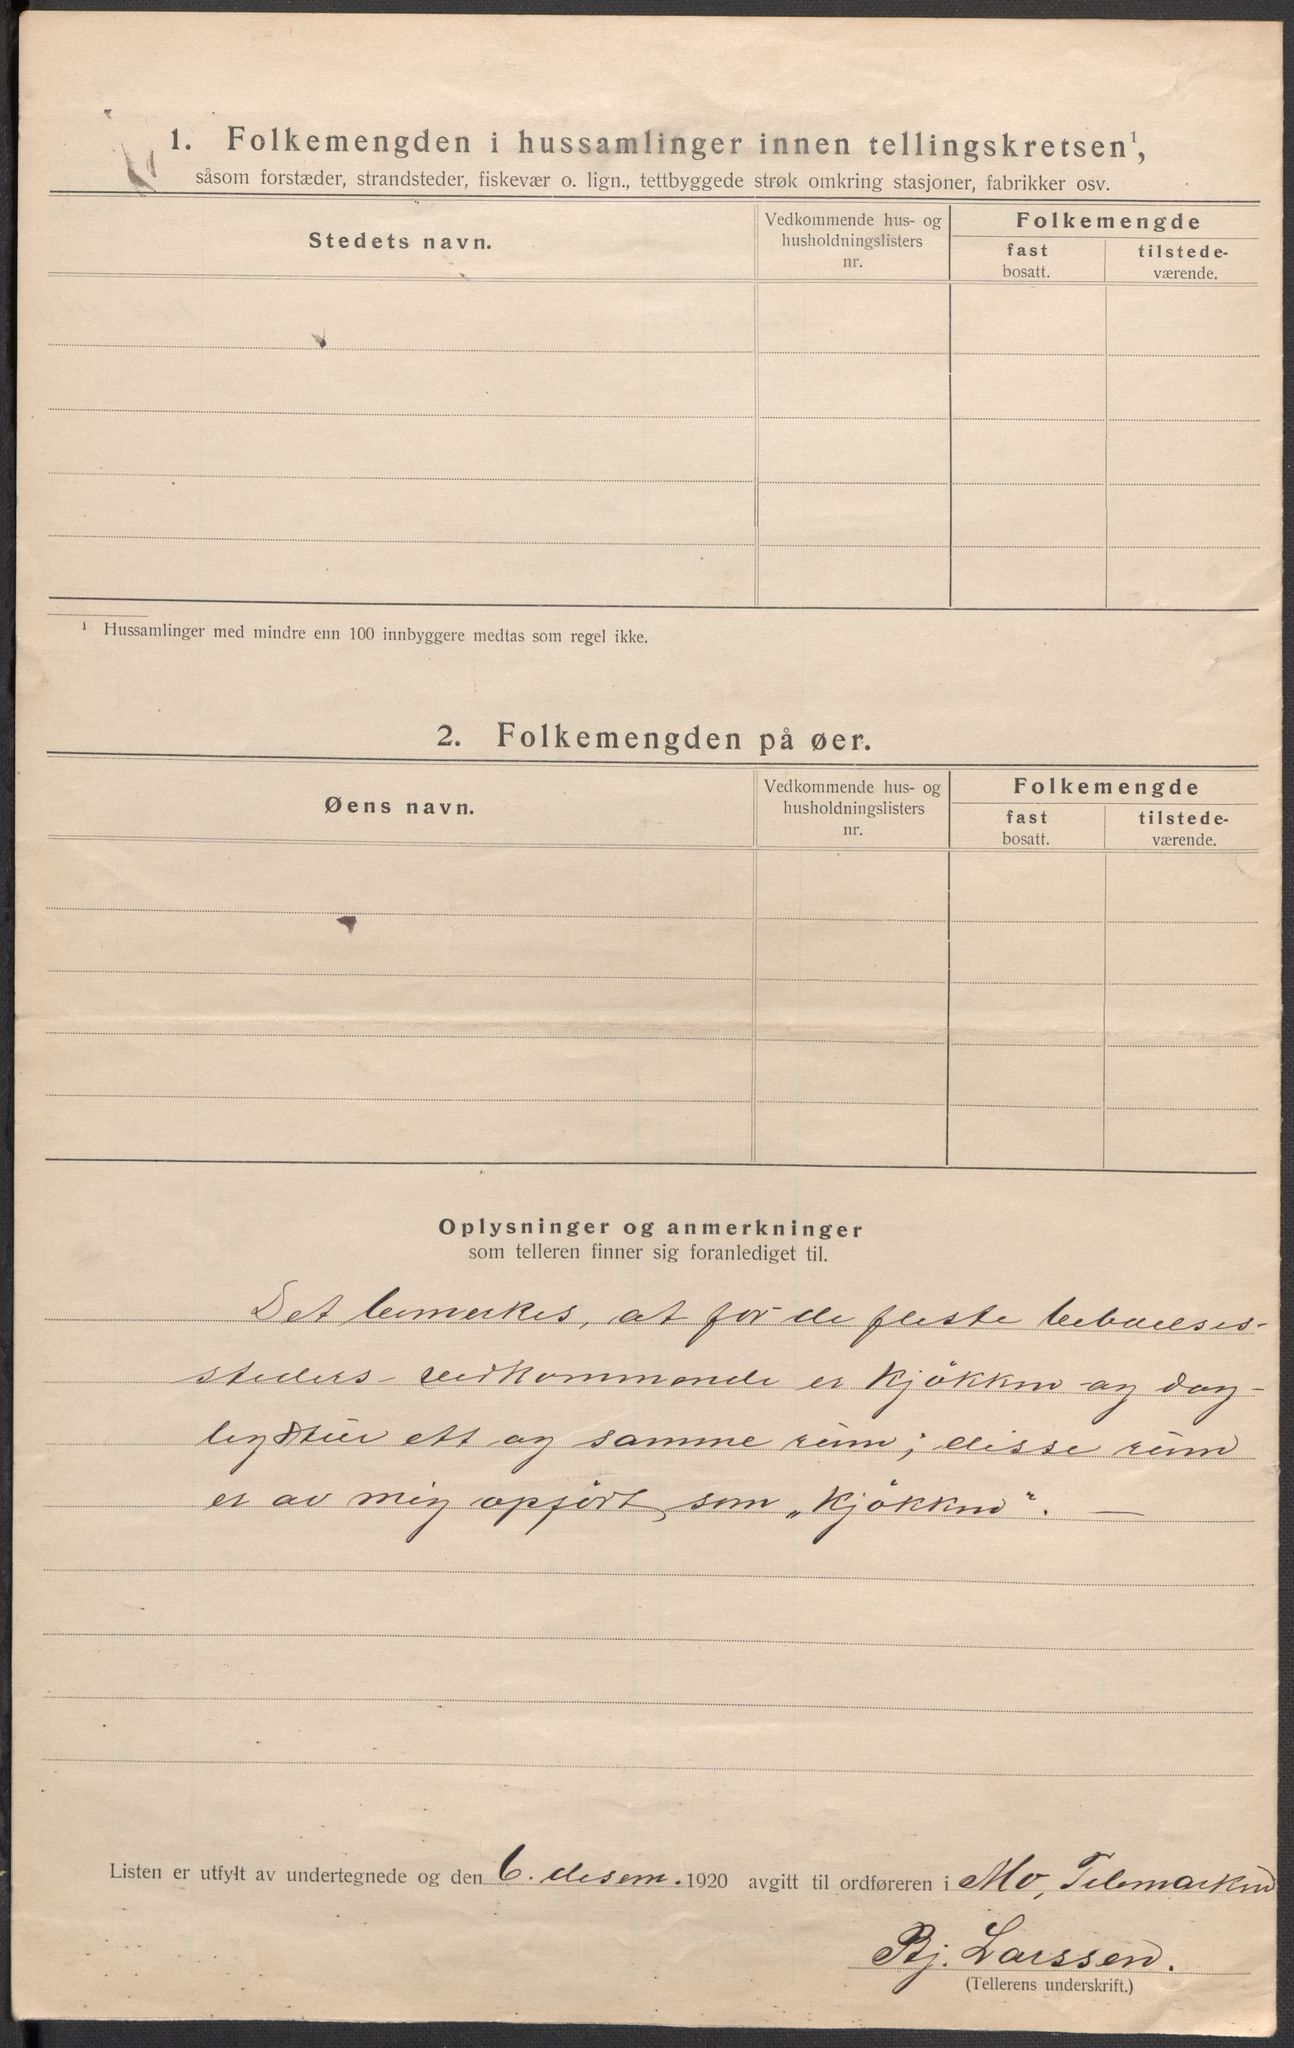 1. Folkemengden i hussamlinger innen tellingskretsen¹,
såsom forstæder, strandsteder, fiskevær o. lign., tettbyggede strøk omkring stasjoner, fabrikker osv.
Stedets navn.
Vedkommende hus- og
husholdningslisters
nr.
Folkemengde
fast
bosatt.
tilstede-
værende.
¹ Hussamlinger med mindre enn 100 innbyggere medtas som regel ikke.
2. Folkemengden på øer.
Øens navn.
Vedkommende hus- og
husholdningslisters
nr.
Folkemengde
fast
bosatt.
tilstede-
værende.
Oplysninger og anmerkninger
som telleren finner sig foranlediget til.
Det bemerkes, at for de fleste beboelses-
steders vedkommende er kjøkken og dag-
ligstue ett og samme rum; disse rum
er av mig opført som „kjøkken". —
Listen er utfylt av undertegnede og den 6. desem. 1920 avgitt til ordføreren i Mo, Telemarken
Bj. Larssen.
(Tellerens underskrift.)